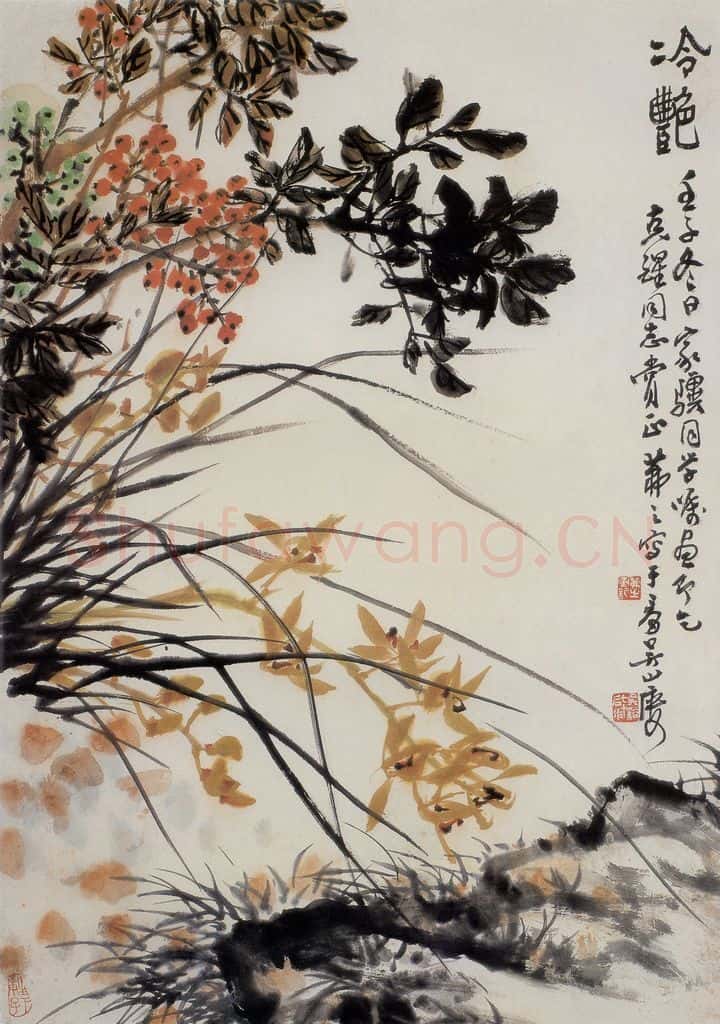 冷艷
壬子冬日家驥同学嘱画即乞
同志赏正茀之写于看吴山楼
Shufawang.CN